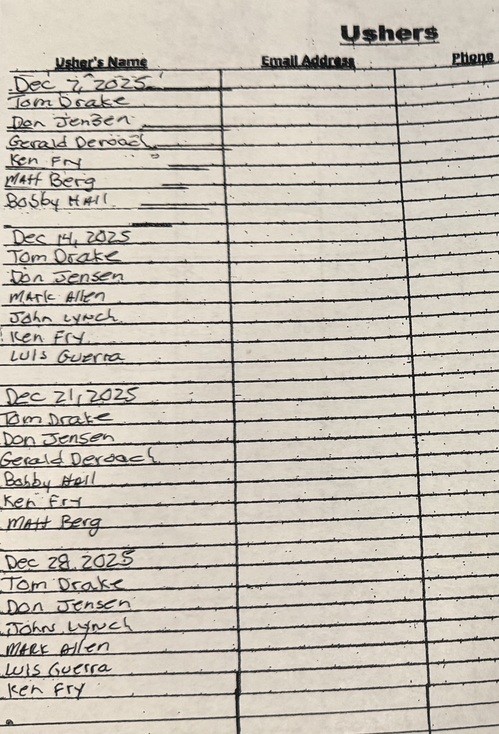 Ushers
Usher's Name Email Address Phone
Dec 7, 2025
Tom Drake
Don Jensen
Gerald Deroach
Ken Fry
Matt Berg
Bobby Hall
Dec 14, 2025
Tom Drake
Don Jensen
Mark Allen
John Lynch
Ken Fry
Luis Guerra
Dec 21, 2025
Tom Drake
Don Jensen
Gerald Deroach
Bobby Hall
Ken Fry
Matt Berg
Dec 28, 2025
Tom Drake
Don Jensen
John Lynch
Mark Allen
Luis Guerra
Ken Fry